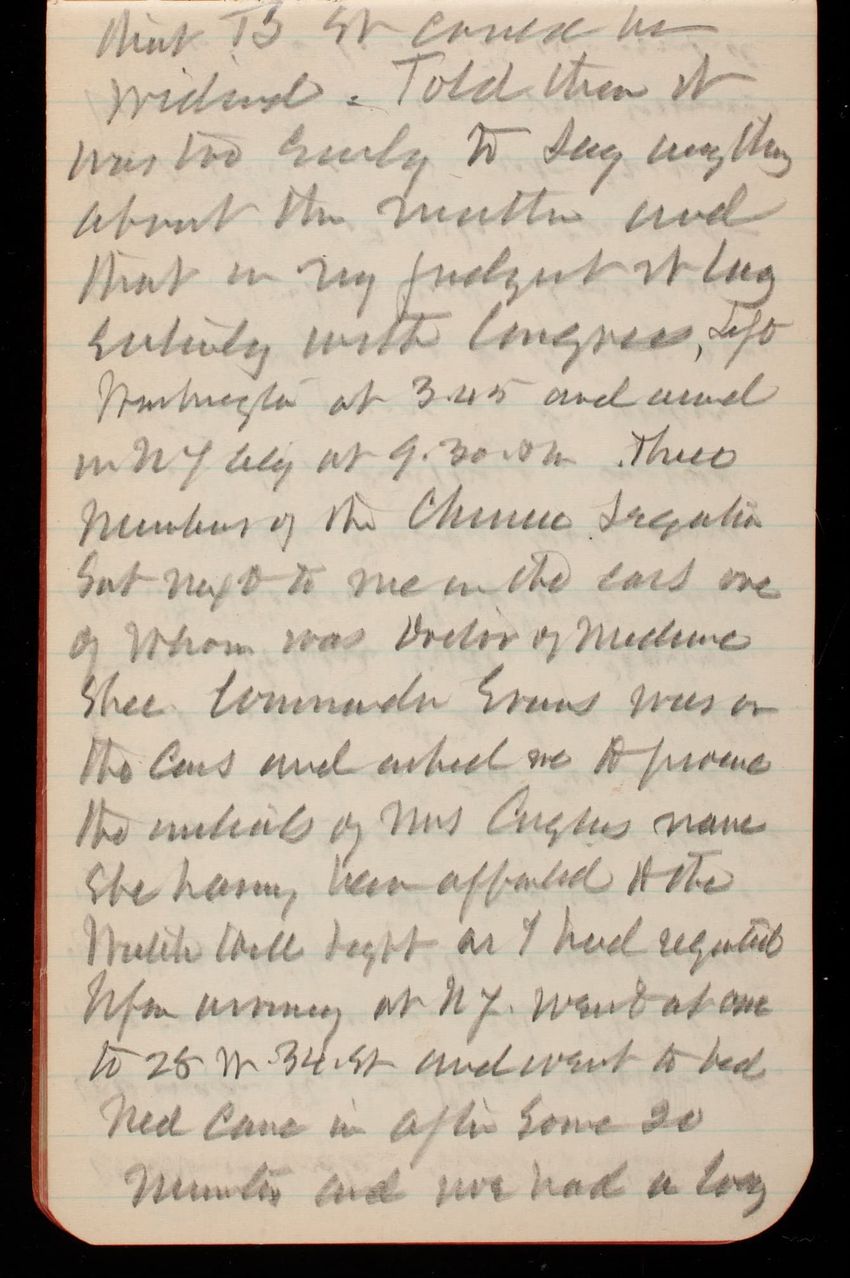 that B St could be
widened. Told them it
was too Early to Say anything
about the matter and
that in my judgmt it lay
Entirely with Congress, Left
Washington at 3.45 and arrived
in NY City at 9.30 Three
Members of the Chinese Legation
Sat next to me in the cars one
of whom was Doctor of Medicine
Commander Evans was on
the Cars and asked me to procure
the initials of Mrs name
She having been appointed to the
Light as I had requested
Upon arriving at NY. went at once
to 28 W. 34. St and went to bed
Ned Came in after Some 20
Minutes and we had a long